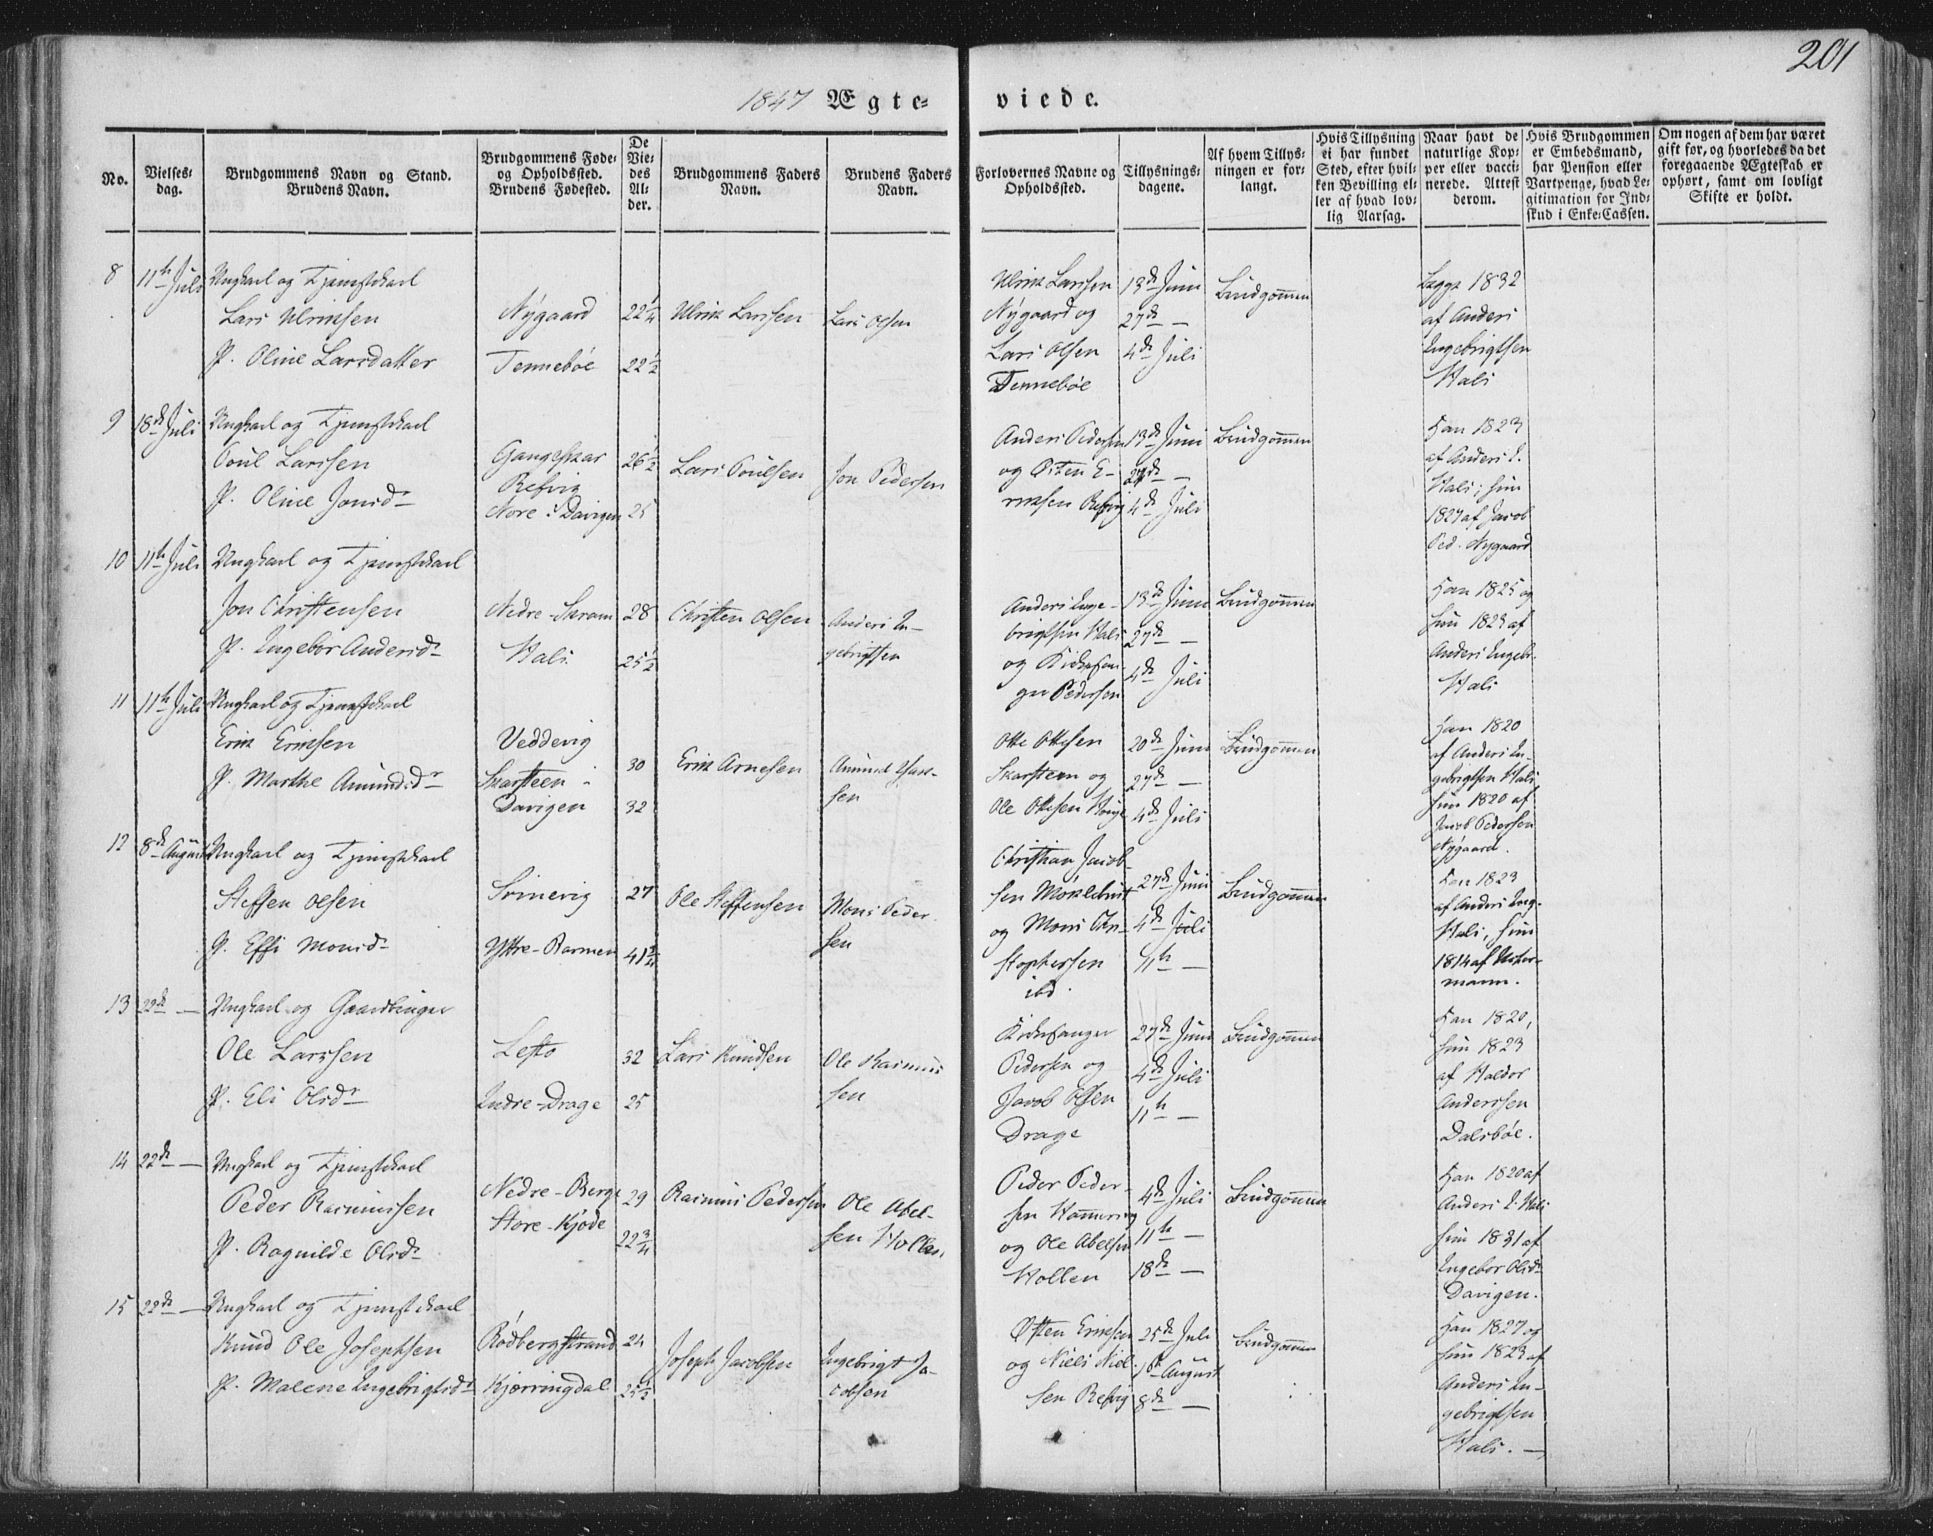 201
1847 Ægte-
viede.
No.
Vielses-
dag.
Brudgommens Navn og Stand.
Brudens Navn.
Brudgommens Føde-
og Opholdssted.
Brudens Fødested.
De
Vie-
des
Al-
der.
Brudgommens Faders
Navn.
Brudens Faders
Navn.
Forlovernes Navne og
Opholdssted.
Tillysnings-
dagene.
Af hvem Tillys-
ningen er for-
langt.
Hvis Tillysning
ei har fundet
Sted, efter hvil-
ken Bevilling el-
ler af hvad lov-
lig Aarsag.
Naar havt de
naturlige Kop-
per eller vacci-
nerede. Attest
derom.
Hvis Brudgommen
er Embedsmand,
har Pension eller
Vartpenge, hvad Le-
gitimation for Ind-
skud i Enke-Cassen.
Om nogen af dem har været
gift før, og hvorledes da det
foregaaende Ægteskab er
ophørt, samt om lovligt
Skifte er holdt.
8 11te Juli Ungkarl og Tjenestekarl
Lars Ulriksen
P. Oline Larsdatter
Nÿgaard
Tennebøe
22 1/4
22 1/2
Ulrik Larssen
Lars Olsen
Ulrik Larssen
Nÿgaard og
Lars Olsen
Tennebøe
13de Juni
27de —
4de Juli
Brudgommen
Begge 1832
af Anders
Ingebrigtsen
Hals
9 18de Juli Ungkarl og Tjenestekarl
Poul Larssen
P. Oline Jonsdr
Gangeskar
Refvig
Nore i Davigen
26 1/2
25
Lars Poulsen
Jon Pedersen
Anders Pedersen
og Østen E-
riksen Refvig
13de Juni
27de —
4de Juli
Brudgommen
Han 1823
af Anders I.
Hals; hun
1827 af Jacob
Ped. Nygaard
10 11te Juli Ungkarl og Tjenestekarl
Jon Christensen
P. Ingebor Andersdr
Nedre-Skram
Hals
28
25 1/2
Christen Olsen
Anders In-
gebrigtsen
Anders Inge-
brigtsen Hals
og Kirkesan-
ger Pedersen
13de Juni
27de —
4de Juli
Brudgommen
Han 1825 og
hun 1823 af
Anders Ingebr.
Hals
11 11te Juli Ungkarl og Tjenestekarl
Erik Eriksen
P. Marthe Amundsdr
Veddevig
Skarsteen i
Davigen
30
32
Erik Arnesen
Amund
sen
Otte Ottesen
Skarsteen og
Ole Ottesen
20de Juni
27de —
4de Juli
Brudgommen
Han 1820
af Anders In-
gebrigtsen Hals
hun 1820 af
Jacob Pedersen
Nÿgaard.
12 8de August Ungkarl og Tjenestekarl
Steffen Olsen
P. Effi Monsdr
Svinevig
Yttre-Barmen
27
41 3/4
Ole Steffensen
Mons Peder-
sen
Christian Jacob-
sen Moklebust
og Mons Chri-
stophersen
ibd.
27de Juni
4de Juli
11te —
Brudgommen
Han 1823
af Anders Ing.
Hals, hun
1814 af
mann.
13 22de — Ungkarl og Gaardbruger
Ole Larssen
P. Eli Olsdr
Lefto
Indre-Drage
32
25
Lars Knudsen
Ole Rasmus
sen
Kirkesanger
Pedersen og
Jacob Olsen
Drage
27de Juni
4de Juli
11te —
Brudgommen
Han 1820,
hun 1823
af Haldor
Anderssen
Dalsbøe.
14 22de — Ungkarl og Tjenestekarl
Peder Rasmussen
P. Ragnilde Olsdr
Nedre-Berge
Store-Kjøde
29
22 3/4
Rasmus Pedersen
Ole Abel-
sen Hollen.
Peder Peder-
sen
og Ole Abelsen
Hollen
4de Juli
11te —
18de —
Brudgommen
Han 1820 af
Anders I. Hals
hun 1831 af
Ingebor Olsdr
Davigen.
15 22de — Ungkarl og Tjenestekarl
Knud Ole Josephsen
P. Malene Ingebrigtsdr
Rødbergstrand
Kjærringdal
24
25 1/2
Joseph Jacobsen
Ingebrigt Ja-
cobsen
Østen Eriksen
og Niels Niel-
sen Refvig
25de Juli
1ste August
8de —
Brudgommen
Han 1827 og
hun 1823 af
Anders In-
gebrigtsen
Hals. —